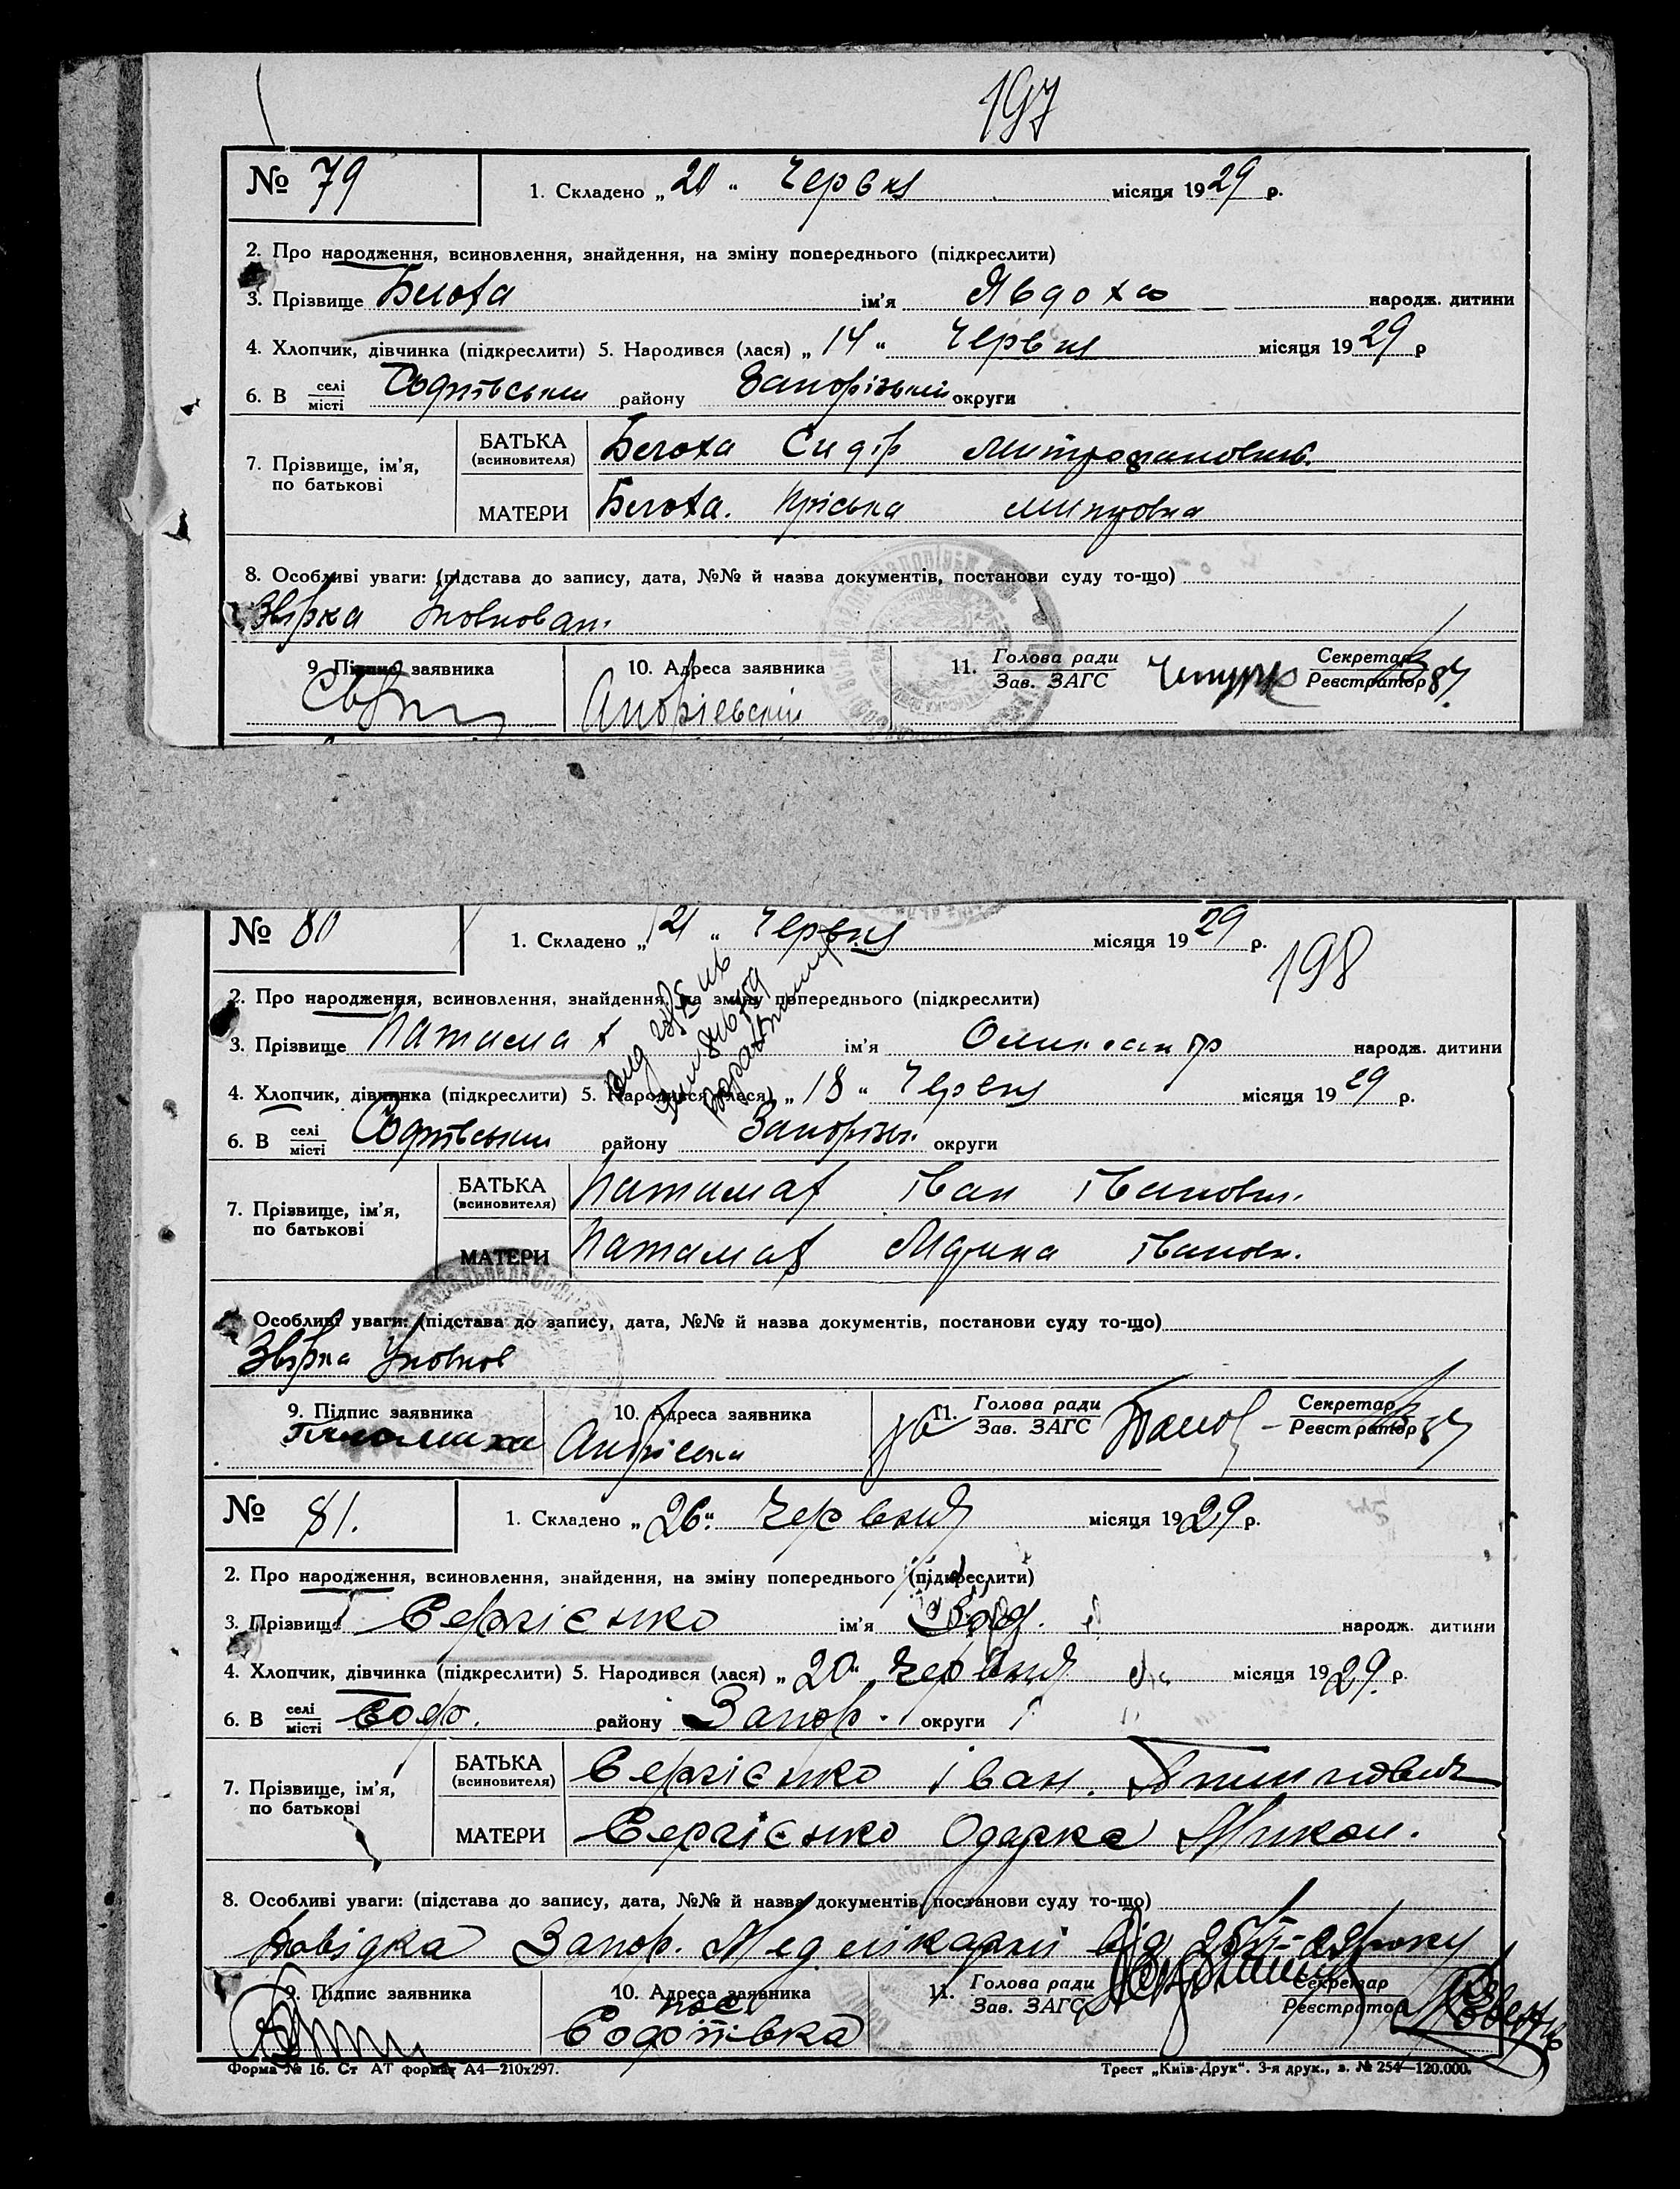 197
№ 79 1. Складено „20“ Червня місяця 1929 р.
2. Про народження, всиновлення, знайдення, на зміну попереднього (підкреслити)
3. Прізвище Белоха ім'я Явдоха народж. дитини
4. Хлопчик, дівчинка (підкреслити) 5. Народився (лася) „14“ Червня місяця 1929 р
6. В селі місті Софіївський району Запорізький округи
7. Прізвище, ім'я, по батькові
БАТЬКА (всиновителя) Белоха Сидір Митрофанович.
МАТЕРИ Белоха. Пріська
8. Особливі уваги: (підстава до запису, дата, №№ й назва документів, постанови суду то-що)
Звірка
9. Підпис заявника 10. Адреса заявника 11. Голова ради Зав. ЗАГС Секретар Реєстратор
Андрієвський
№ 80 1. Складено „21“ Червня місяця 1929 р.
198
2. Про народження, всиновлення, знайдення, на зміну попереднього (підкреслити)
3. Прізвище ім'я народж. дитини
4. Хлопчик, дівчинка (підкреслити) 5. Народився (лася) „18“ Червня місяця 1929 р.
6. В селі місті Софіївський району Запорізьк. округи
7. Прізвище, ім'я, по батькові
БАТЬКА (всиновителя) Іван Іванович.
МАТЕРИ Іванов.
8. Особливі уваги: (підстава до запису, дата, №№ й назва документів, постанови суду то-що)
Звірка
9. Підпис заявника 10. Адреса заявника 11. Голова ради Зав. ЗАГС Секретар Реєстратор
№ 81. 1. Складено „26“ Червня місяця 1929 р.
2. Про народження, всиновлення, знайдення, на зміну попереднього (підкреслити)
3. Прізвище Сергієнко ім'я народж. дитини
4. Хлопчик, дівчинка (підкреслити) 5. Народився (лася) „20“ Червня місяця 1929. р.
6. В селі місті Соф. району Запор. округи
7. Прізвище, ім'я, по батькові
БАТЬКА (всиновителя) Сергієнко Іван.
МАТЕРИ Сергієнко Одарка Микол.
8. Особливі уваги: (підстава до запису, дата, №№ й назва документів, постанови суду то-що)
Довідка Запор. Мед лікарні від 25/VI-29 року
9. Підпис заявника 10. Адреса заявника 11. Голова ради Зав. ЗАГС Секретар Реєстратор
пос. Софіївка
Форма № 16. Ст АТ формат А4—210х297. Трест „Київ-Друк“. 3-я друк., з. № 254—120.000.